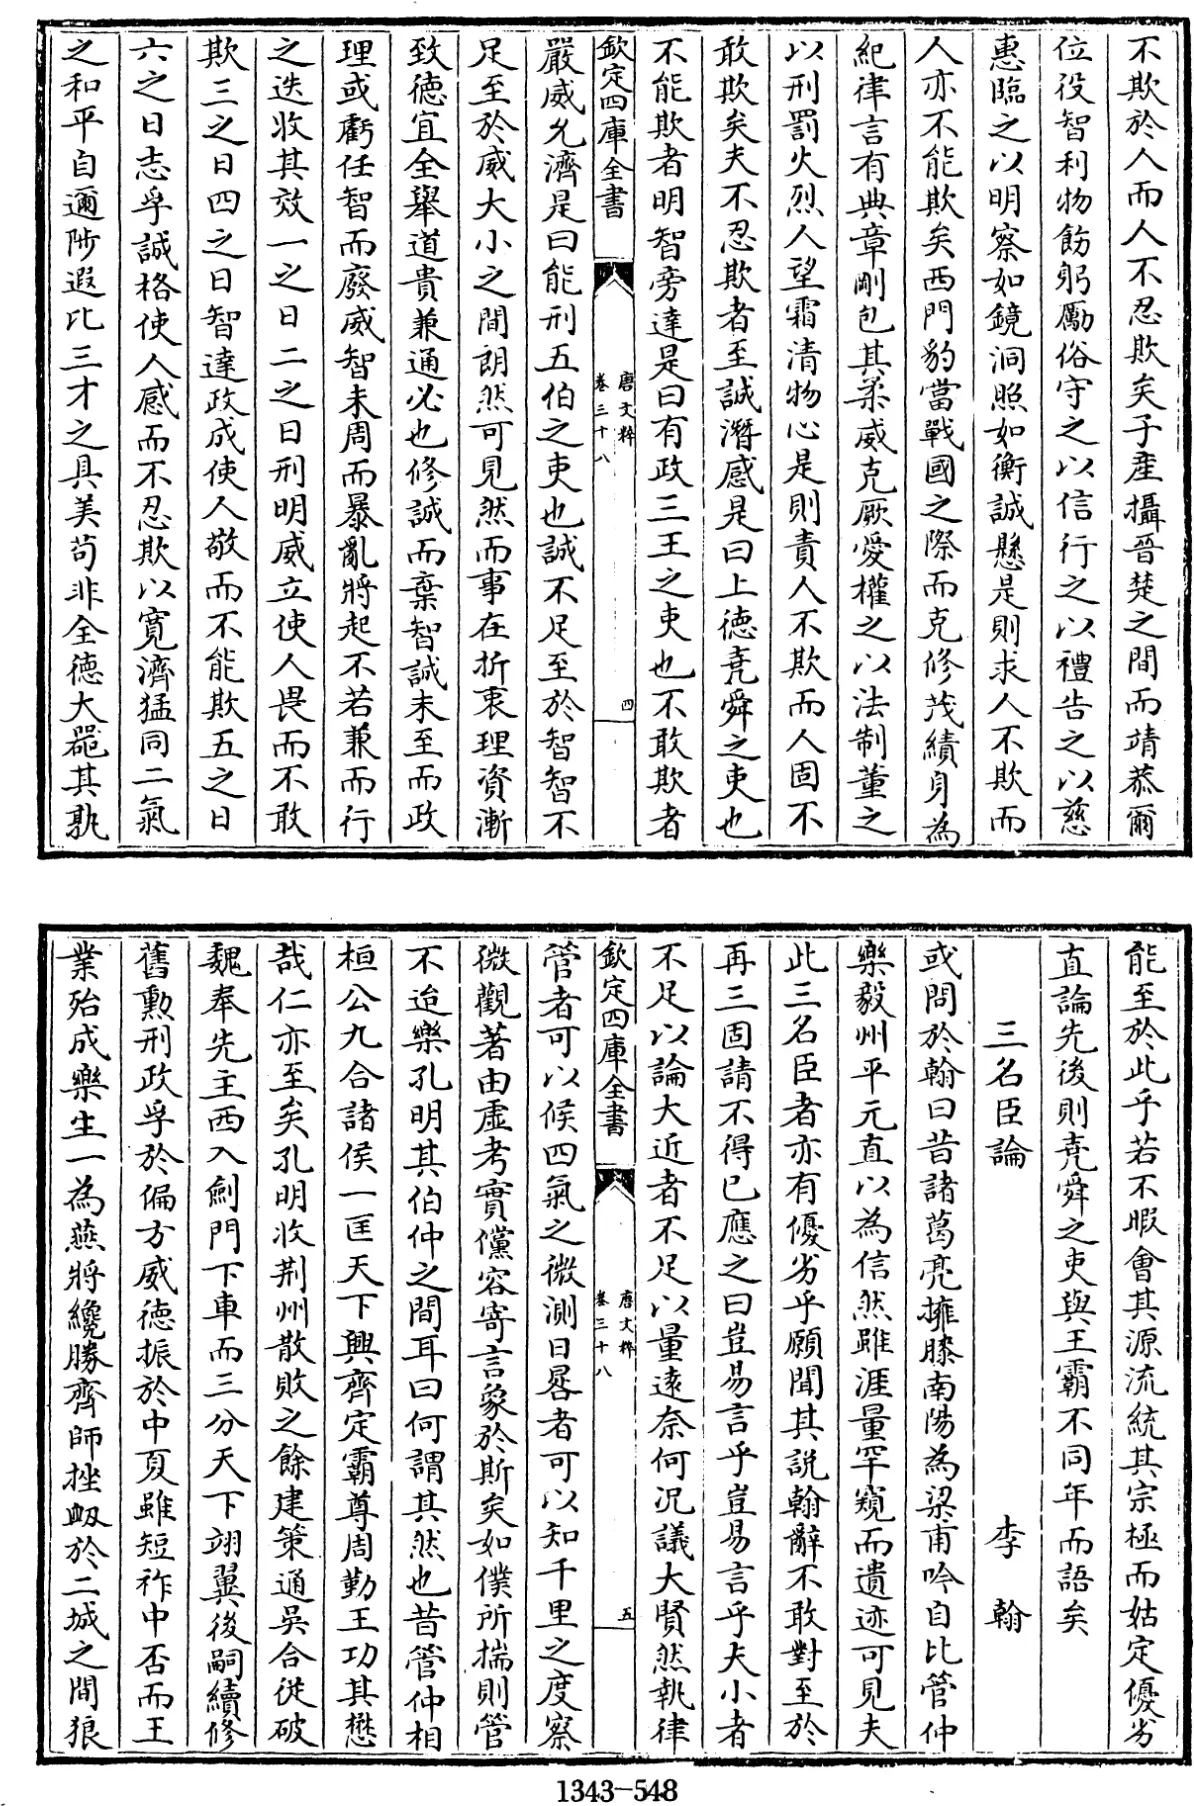 不欺於人而人不忍欺矣子產攝晉楚之間而靖恭爾
位役智利物飭躬勵俗守之以信行之以禮告之以慈
惠臨之以明察如鏡洞照如衡誠懸是則求人不欺而
人亦不能欺矣西門豹當戰國之際而克修茂績身為
紀律言有典章剛包其柔威克厥愛權之以法制董之
以刑罰火烈人望霜清物心是則責人不欺而人固不
敢欺矣夫不忍欺者至誠潛感是曰上德堯舜之吏也
不能欺者明智旁達是曰有政三王之吏也不敢欺者
欽定四庫全書
唐文粹
卷三十八
四
嚴威允濟是曰能刑五伯之吏也誠不足至於智智不
足至於威大小之間朗然可見然而事在折衷理資漸
致德宜全舉道貴兼通必也修誠而棄智誠未至而政
理或虧任智而廢威智未周而暴亂將起不若兼而行
之迭收其效一之日二之日刑明威立使人畏而不敢
欺三之日四之日智達政成使人敬而不能欺五之日
六之日志孚誠格使人感而不忍欺以寬濟猛同二氣
之和平自邇陟遐比三才之具美苟非全德大器其孰
能至於此乎若不暇會其源流統其宗極而姑定優劣
直論先後則堯舜之吏與王霸不同年而語矣
三名臣論 李翰
或問於翰曰昔諸葛亮擁膝南陽為梁甫吟自比管仲
樂毅州平元直以為信然雖涯量罕窺而遺迹可見夫
此三名臣者亦有優劣乎願聞其說翰辭不敢對至於
再三固請不得已應之曰豈易言乎豈易言乎夫小者
不足以論大近者不足以量遠奈何況議大賢然執律
欽定四庫全書
唐文粹
卷三十八
五
管者可以候四氣之微測日晷者可以知千里之度察
微觀著由虛考實儻容寄言象於斯矣如僕所揣則管
不迨樂孔明其伯仲之間耳曰何謂其然也昔管仲相
桓公九合諸侯一匡天下興齊定霸尊周勤王功其懋
哉仁亦至矣孔明收荆州散敗之餘建策通吳合從破
魏奉先主西入劍門下車而三分天下翊翼後嗣續修
舊勲刑政孚於偏方威德振於中夏雖短祚中否而王
業殆成樂生一為燕將纔勝齊師挫衂於二城之間狼
1343-548